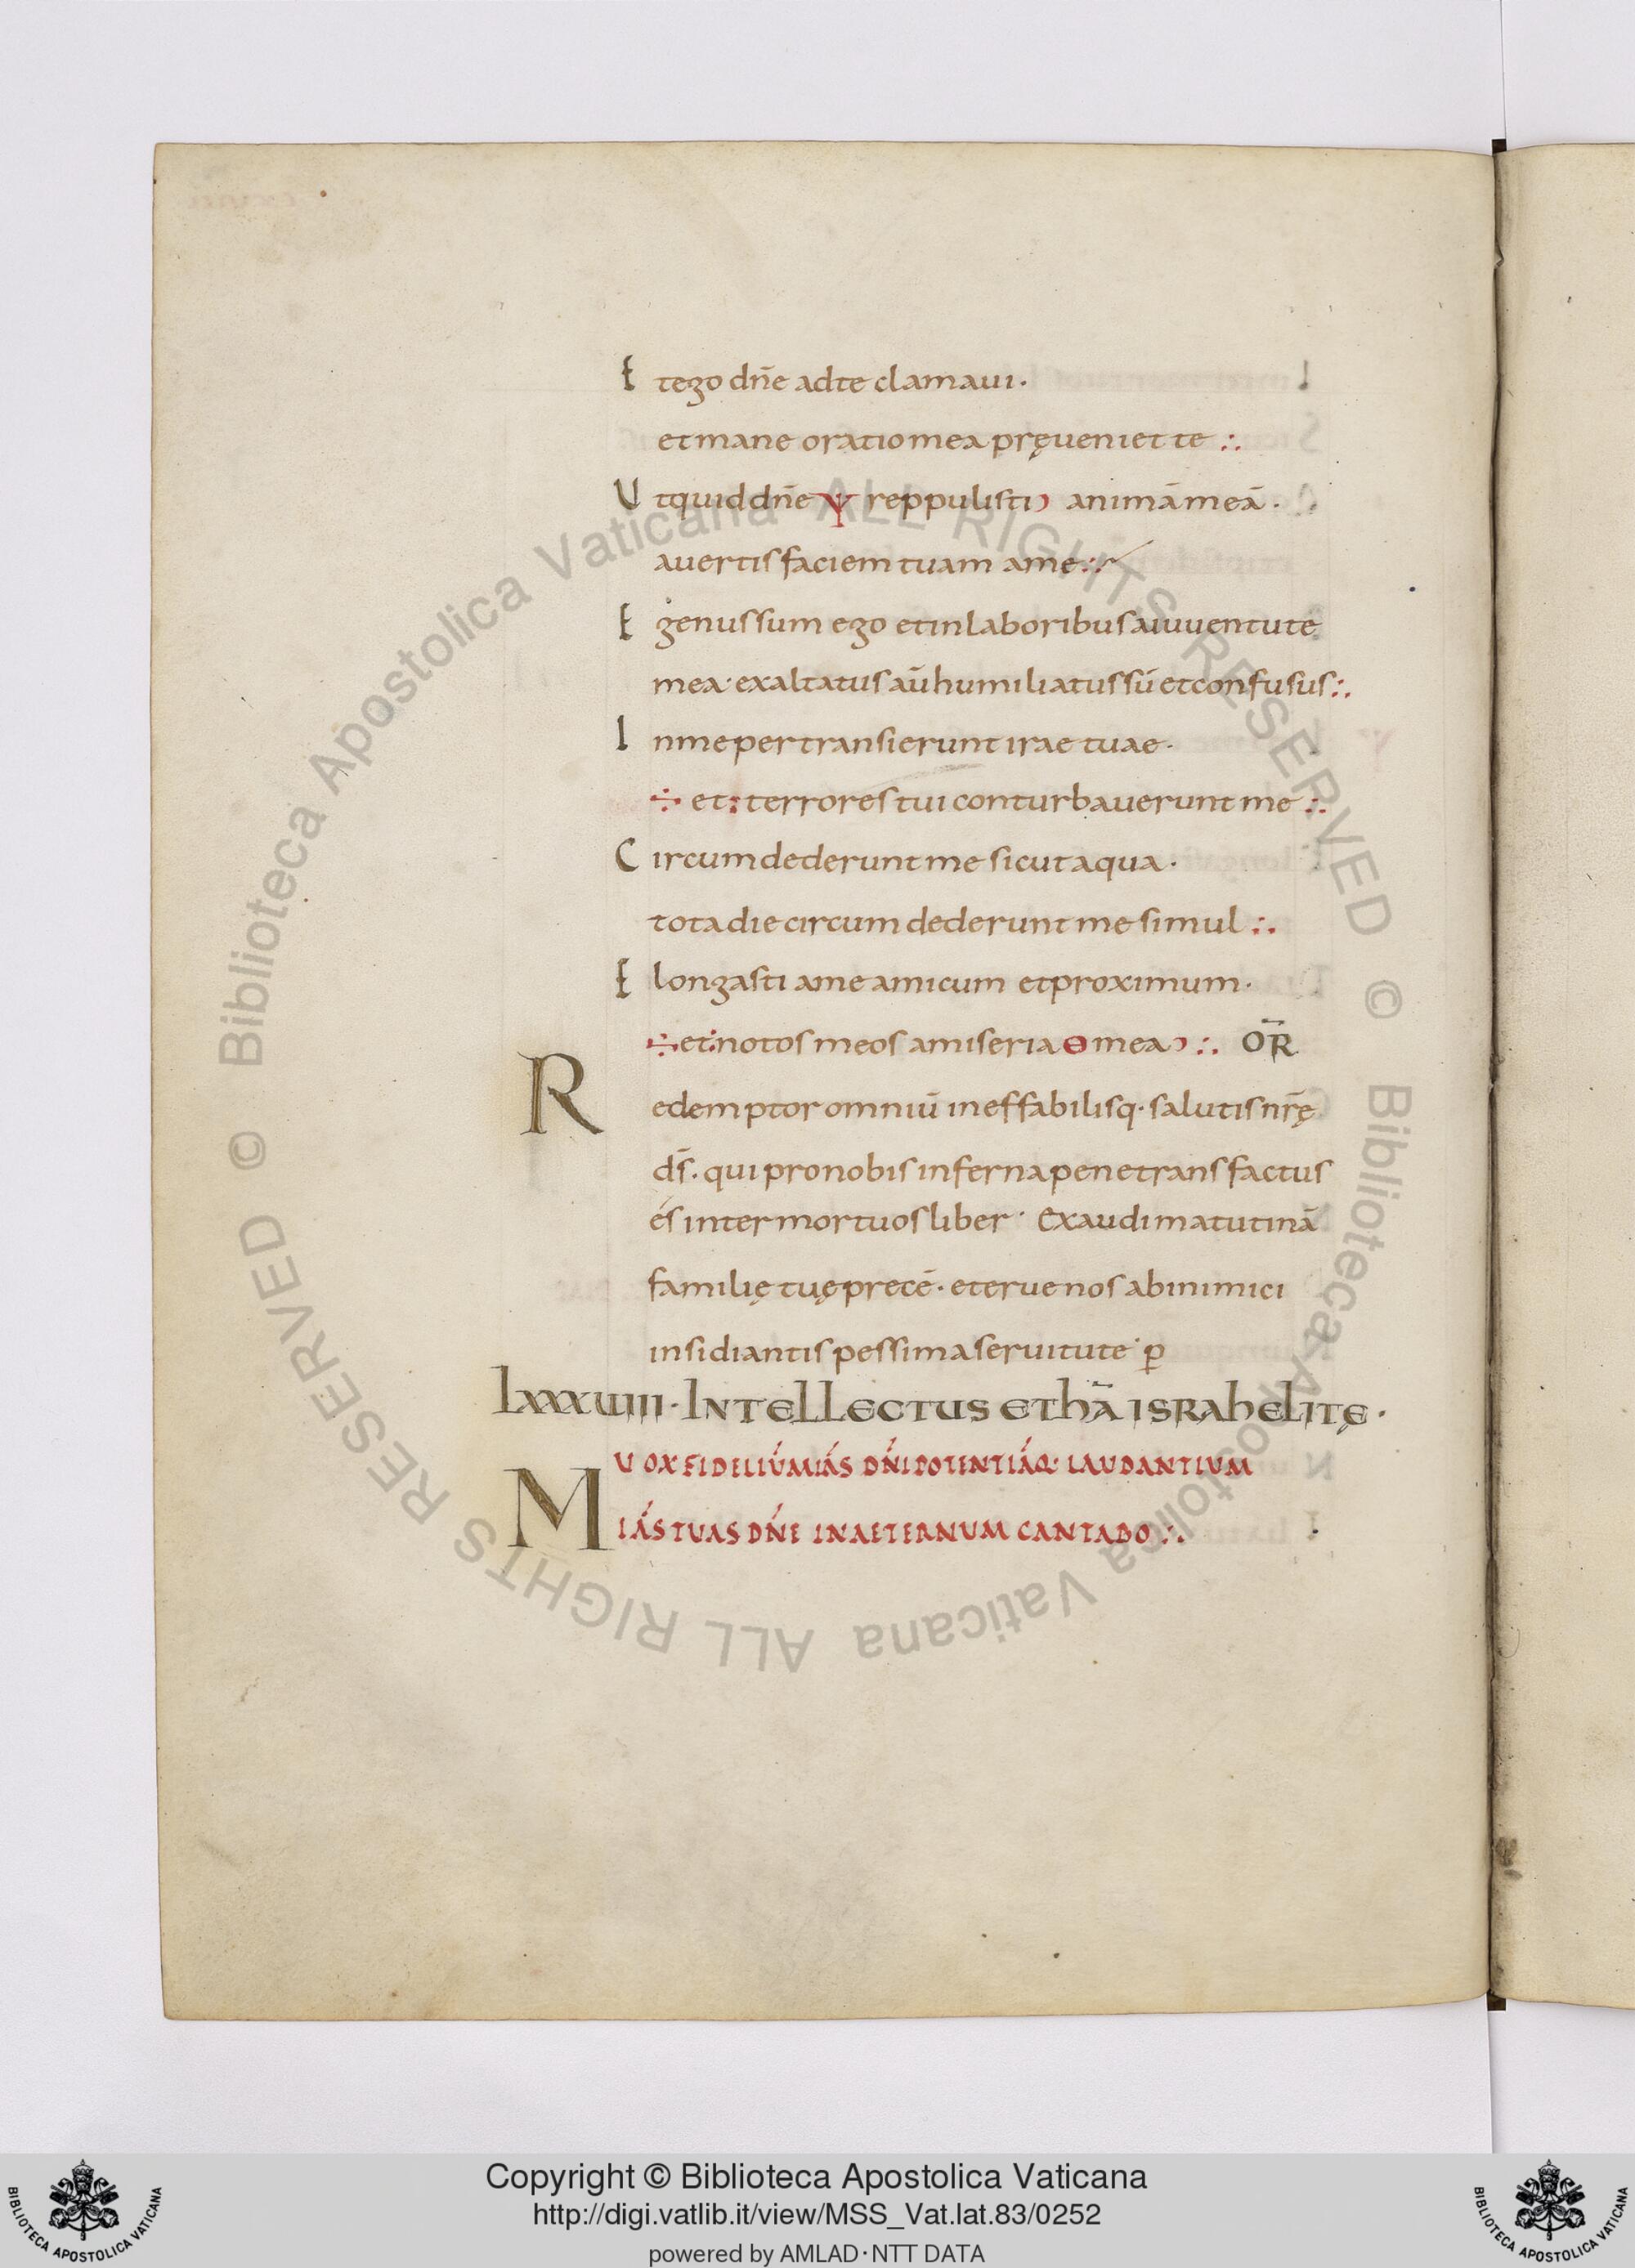 Et ego dn̄e ad te clamaui·
et mane oratio mea pręueniet te ∴
Ut quid dn̄e Ѱ reppulisti animā meā·
auertis faciem tuam a me ∴
Egenus sum ego et in laboribus a iuuentute
mea· exaltatus aū humiliatus sū et confusus ∴
In me pertransierunt irae tuae·
÷ et: terrores tui conturbauerunt me ∴
Circumdederunt me sicut aqua·
tota die circumdederunt me simul ∴
Elongasti a me amicum et proximum·
÷ et: notos meos a miseria ɵ mea ∴ OR̄
Redemptor omniū ineffabilisq· salutis nr̄ę
ds̄· qui pro nobis inferna penetrans factus
és inter mortuos liber· Exaudi matutinā
familię tuę precē· et erue nos ab inimici
insidiantis pessima seruitute· p̄
LXXXUIIII· INTELLECTUS ETHĀ ISRAHELITĘ·
UOX FIDELIŪ MIĀS DN̄I POTENTIĀQ· LAUDANTIUM
MIĀS TUAS DN̄E IN AETERNUM CANTABO ∴
© Biblioteca Apostolica Vaticana ALL RIGHTS RESERVED
© Biblioteca Apostolica Vaticana ALL RIGHTS RESERVED
Copyright © Biblioteca Apostolica Vaticana
http://digi.vatlib.it/view/MSS_Vat.lat.83/0252
powered by AMLAD·NTT DATA
BIBLIOTECA APOSTOLICA VATICANA
BIBLIOTECA APOSTOLICA VATICANA